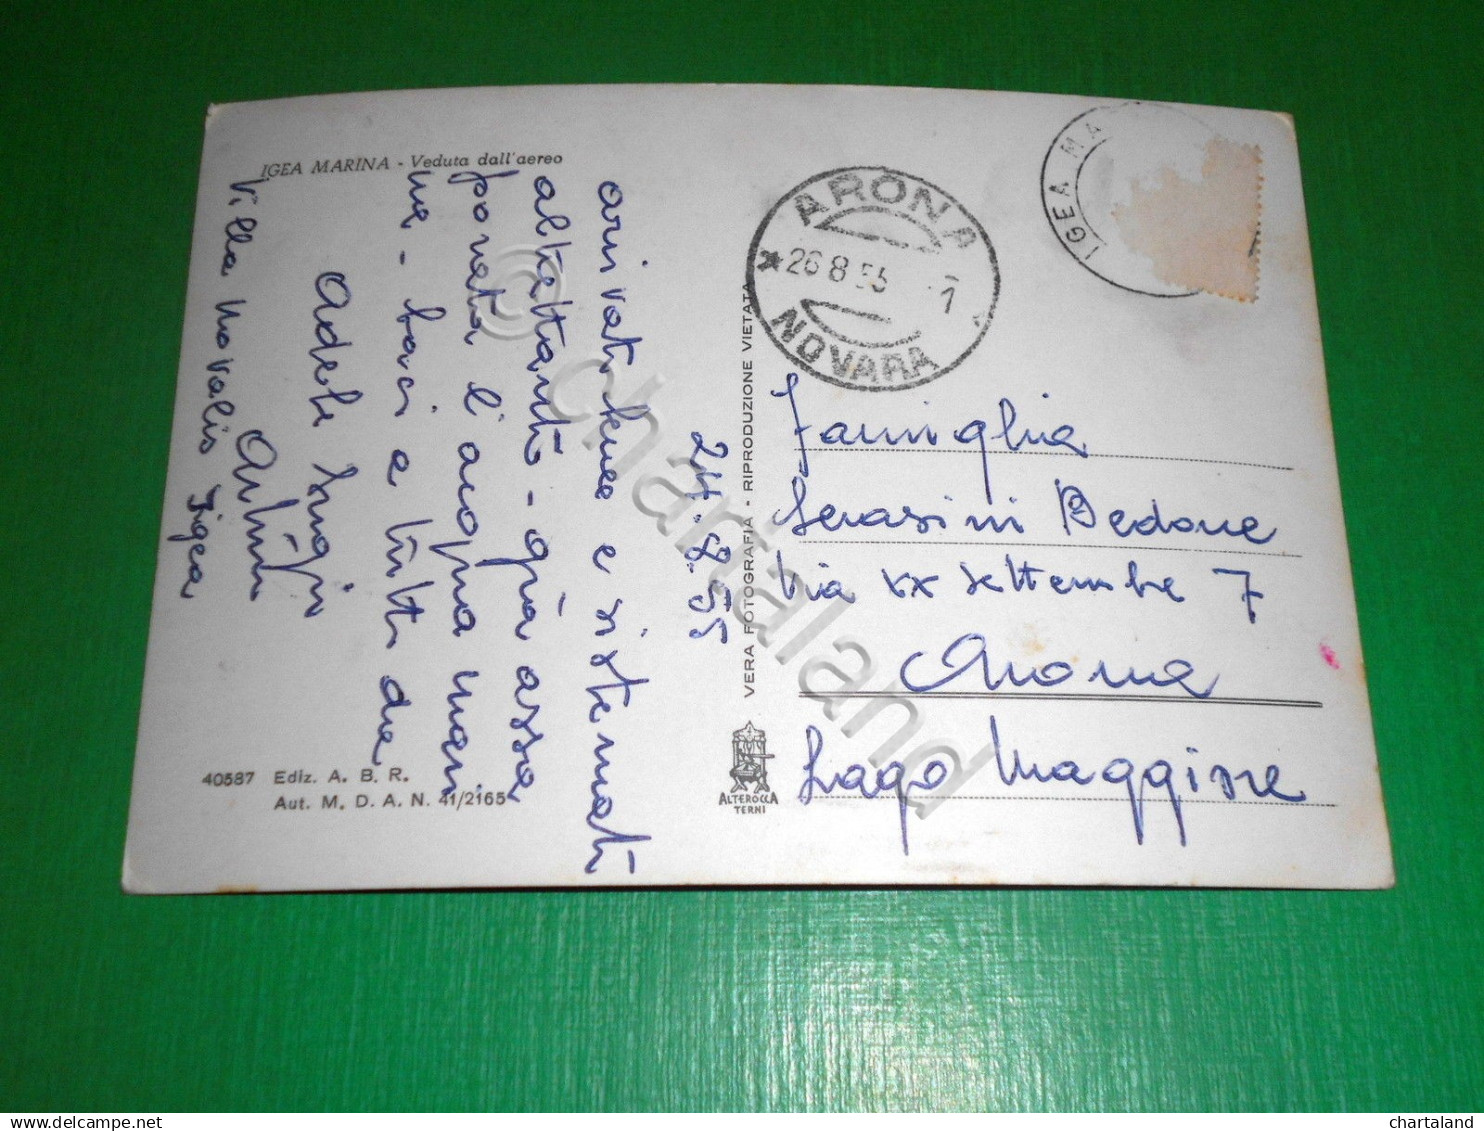 IGEA MARINA - Veduta dall'aereo
24.8.55
arrivati bene e sistemati
altrettanto - già assa
porata l'acqua mari
na - baci a tutti da
Adele Luigi
Villa Novalis Igea
40587 Ediz. A. B. R.
Aut. M. D. A. N. 41/2165
VERA FOTOGRAFIA - RIPRODUZIONE VIETATA
ALTEROCCA
TERNI
ARONA
26 8 55
NOVARA
IGEA MA
Famiglia
Serasini Bedone
Via XX Settembre 7
Arona
Lago Maggiore
© chartaland
chartaland